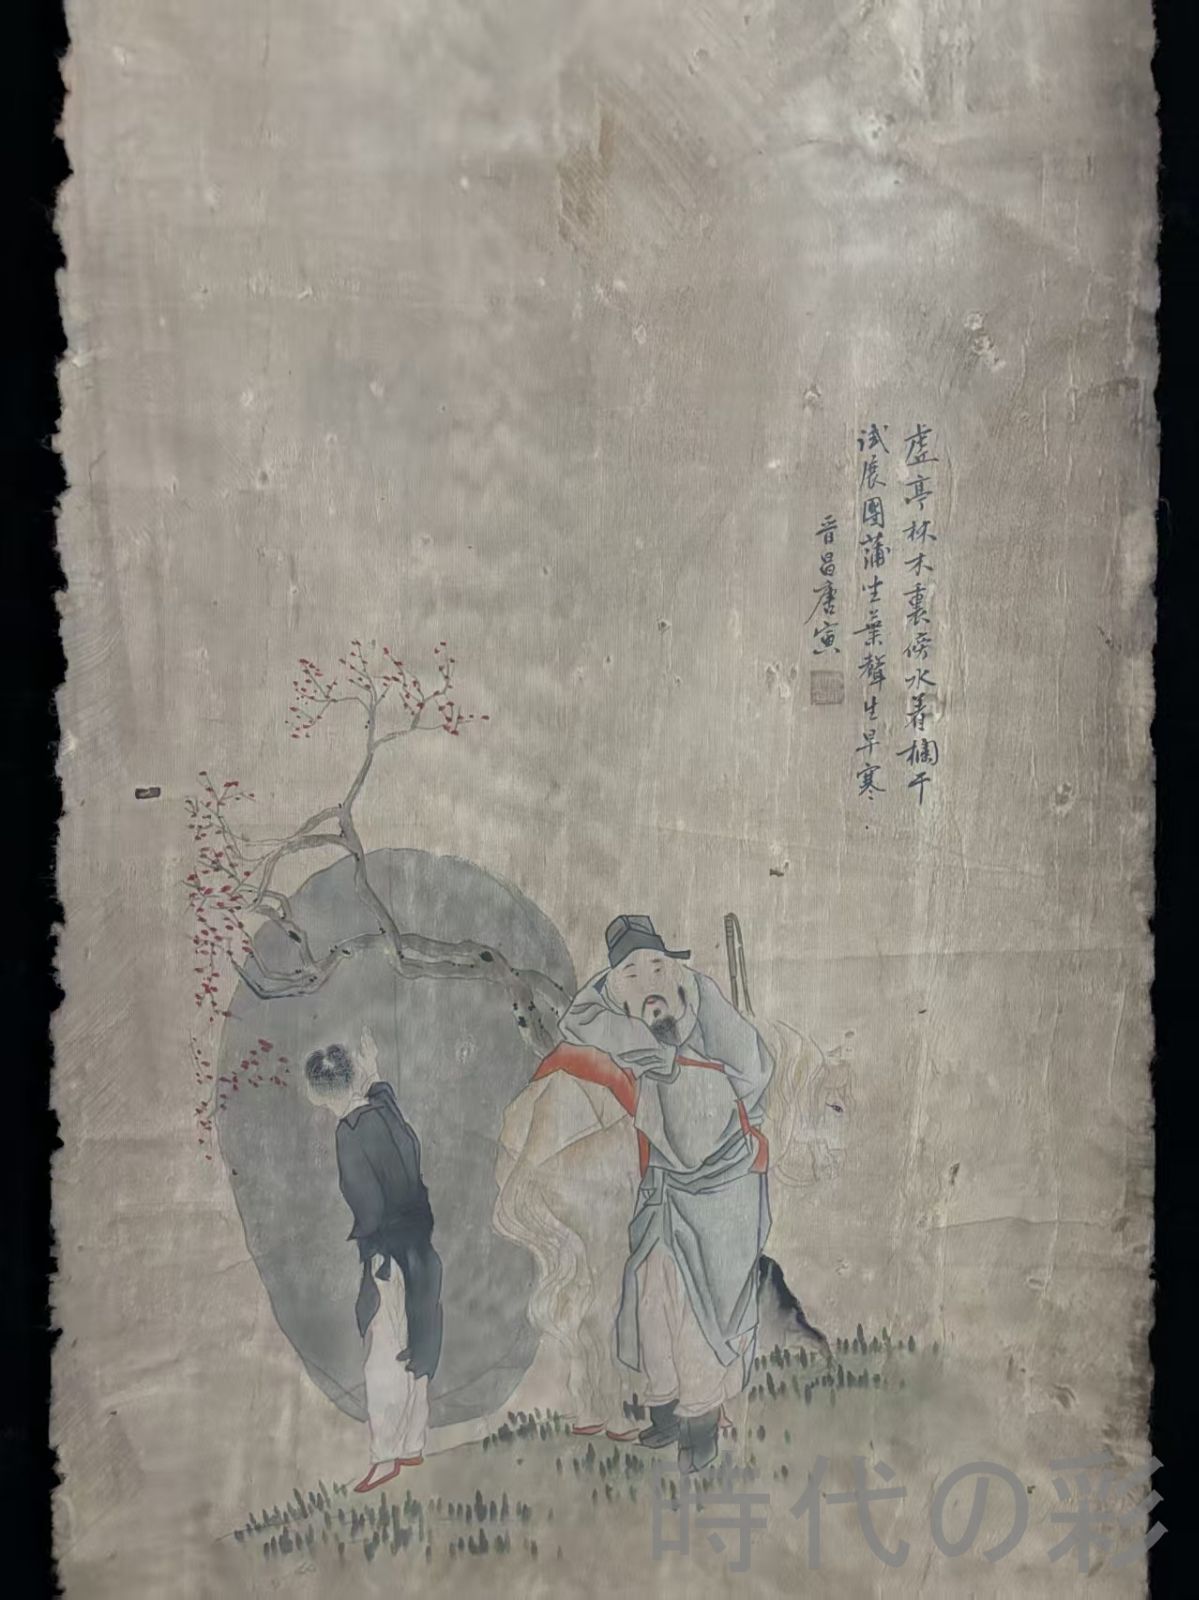 虚亭林木裏傍水着欄干
試展團蒲坐葉聲生早寒
晉昌唐寅
時代の彩